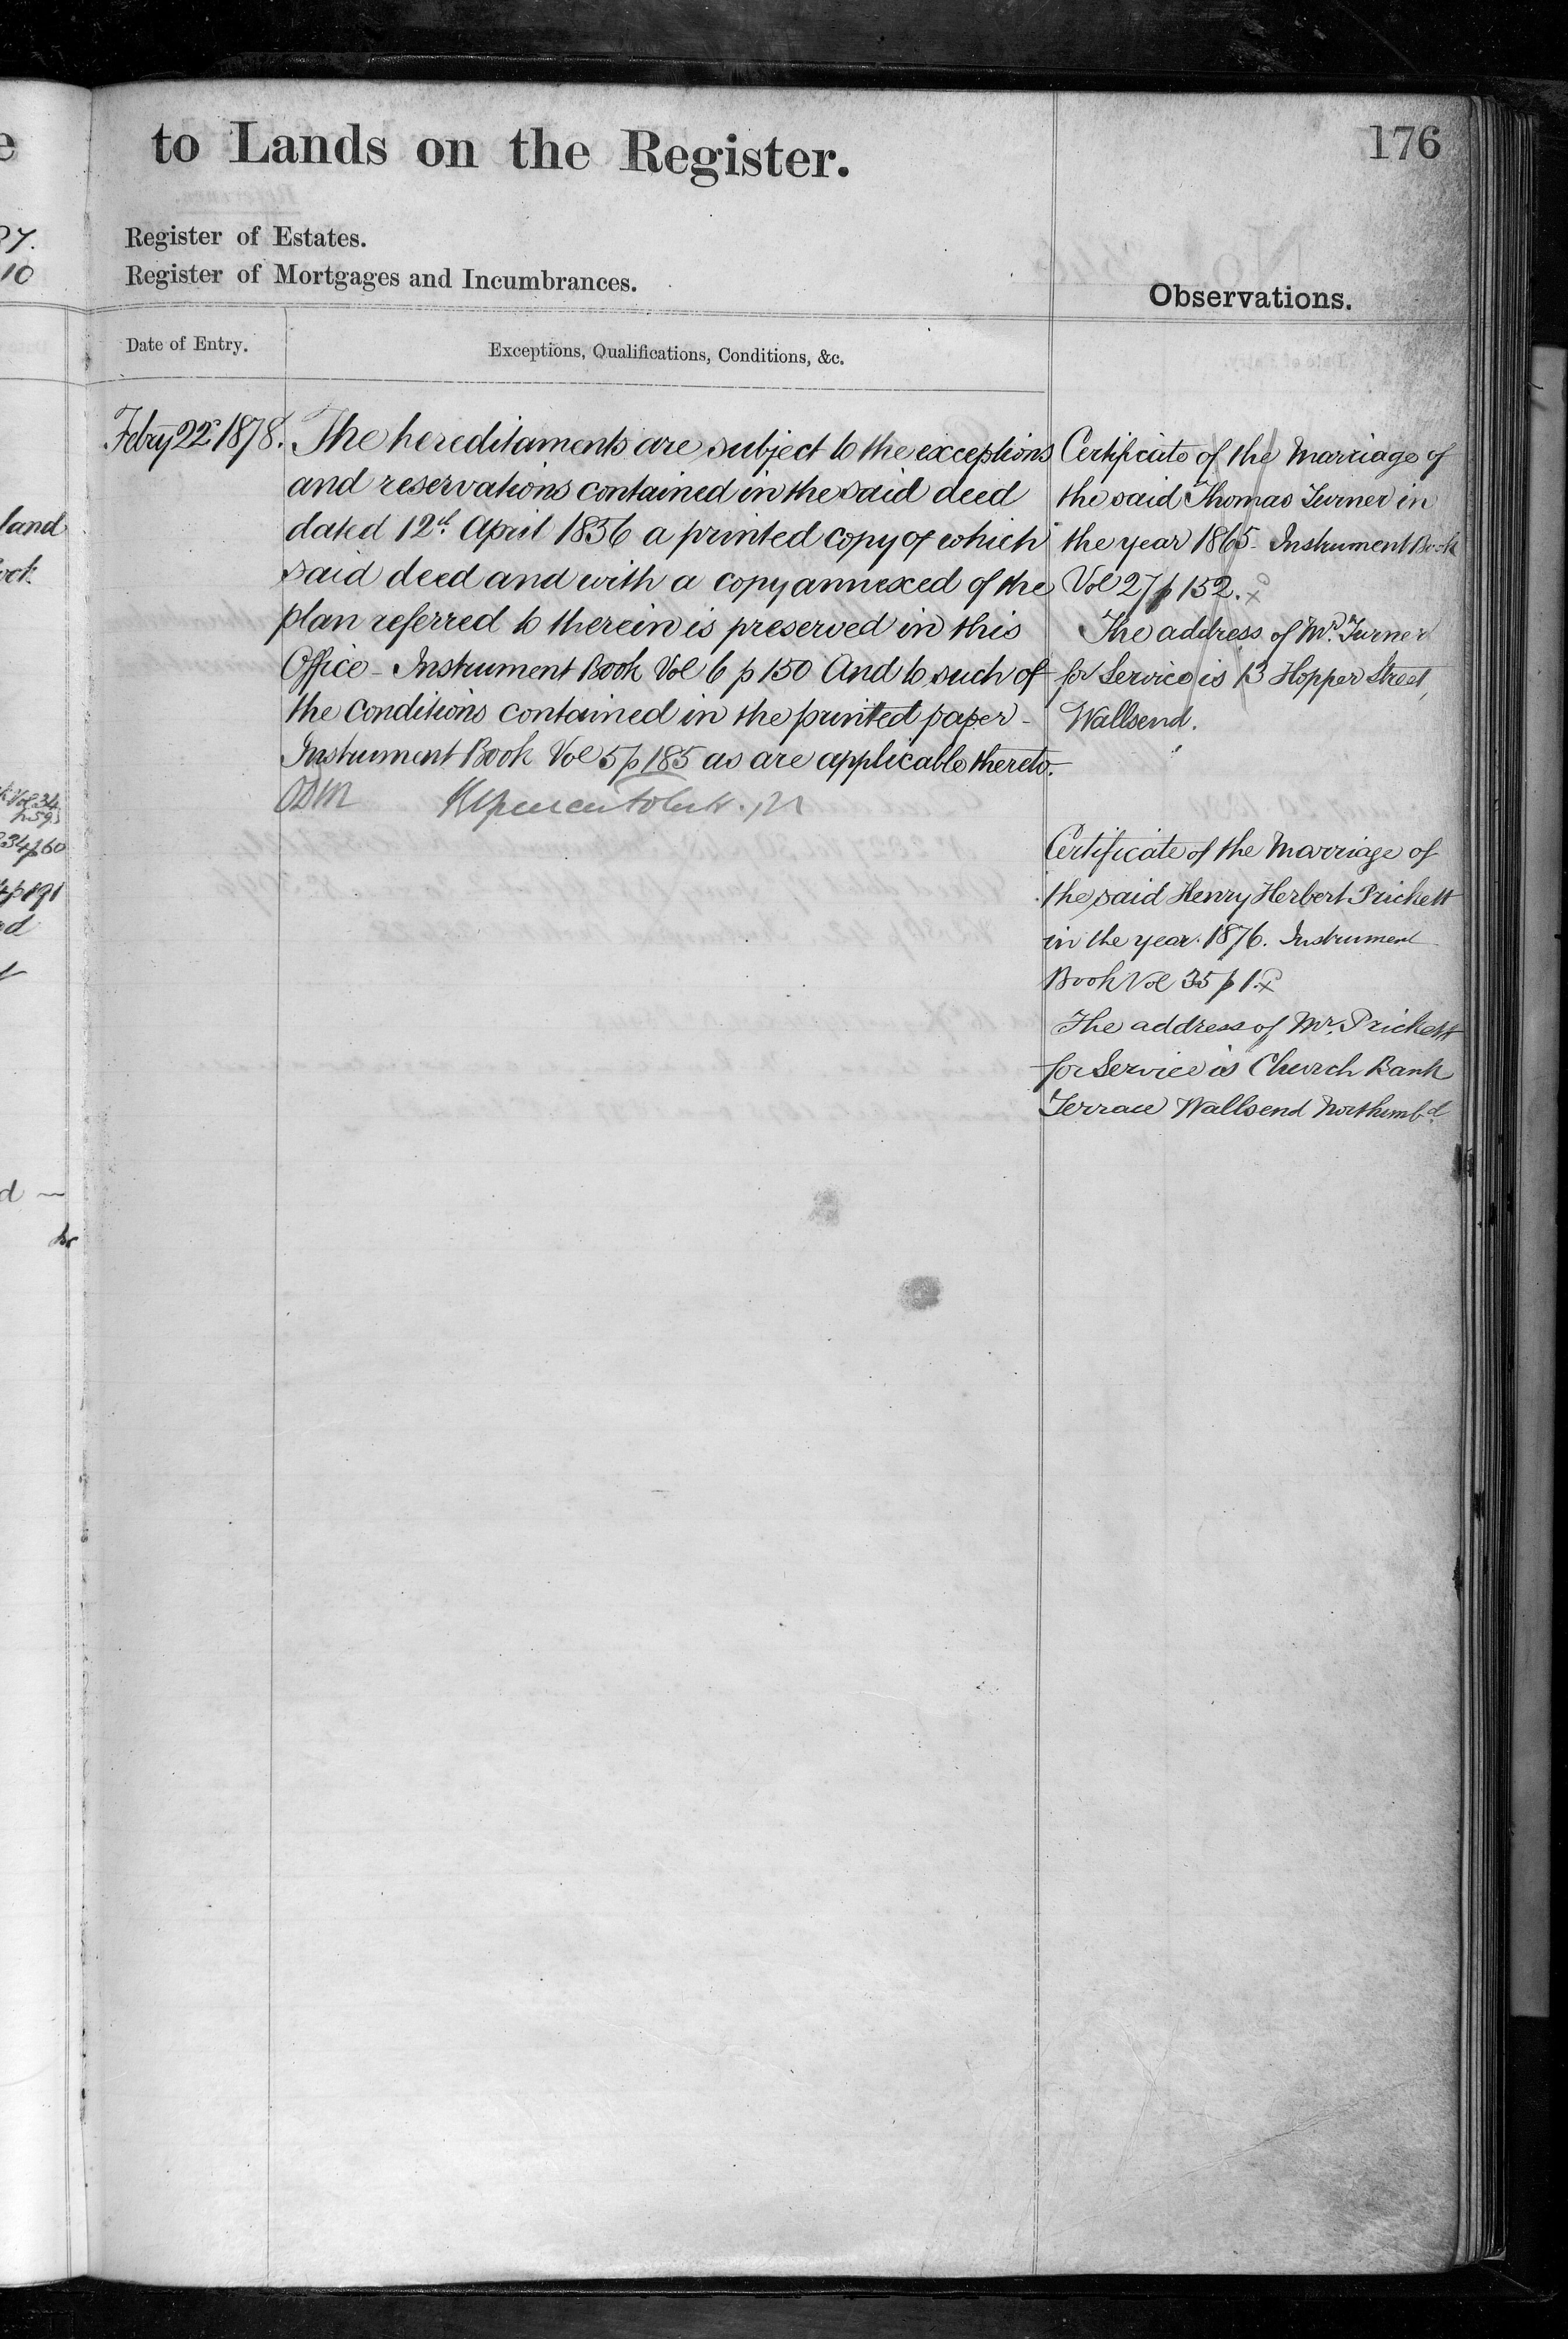 to Lands on the Register.
176
Register of Estates.
Register of Mortgages and Incumbrances.
Observations.
Date of Entry.
Exceptions, Qualifications, Conditions, &c.
Febry 22d 1878.
The hereditaments are subject to the exceptions
and reservations contained in the said deed
dated 12th April 1856 a printed copy of which
said deed and with a copy annexed of the
plan referred to therein is preserved in this
Office - Instrument Book Vol 6 p 150 And to such of
the conditions contained in the printed paper -
Instrument Book Vol 5 p 185 as are applicable thereto.
ODM
Certificate of the Marriage of
the said Thomas Turner in
the year 1865 - Instrument Book
Vol 27 p 152.
The address of Mr. Turner
for Service is 13 Hopper Street,
Wallsend.
Certificate of the Marriage of
the said Henry Herbert Prickett
in the year 1876. Instrument
Book Vol 35 p 1.
The address of Mr. Prickett
for Service is Church Bank
Terrace Wallsend Northumbd.
land
10
34 p 60
p 191